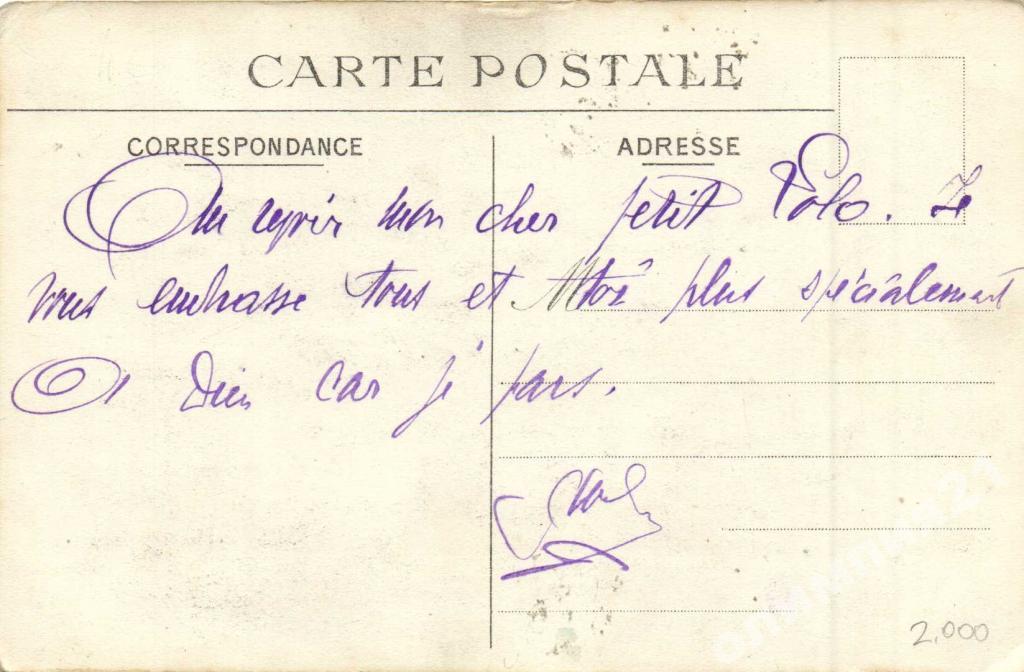 CARTE POSTALE
CORRESPONDANCE
ADRESSE
Au revoir mon cher petit Lolo. Je
vous embrasse tous et toi plus spécialement
A Dieu car je pars.
2.000